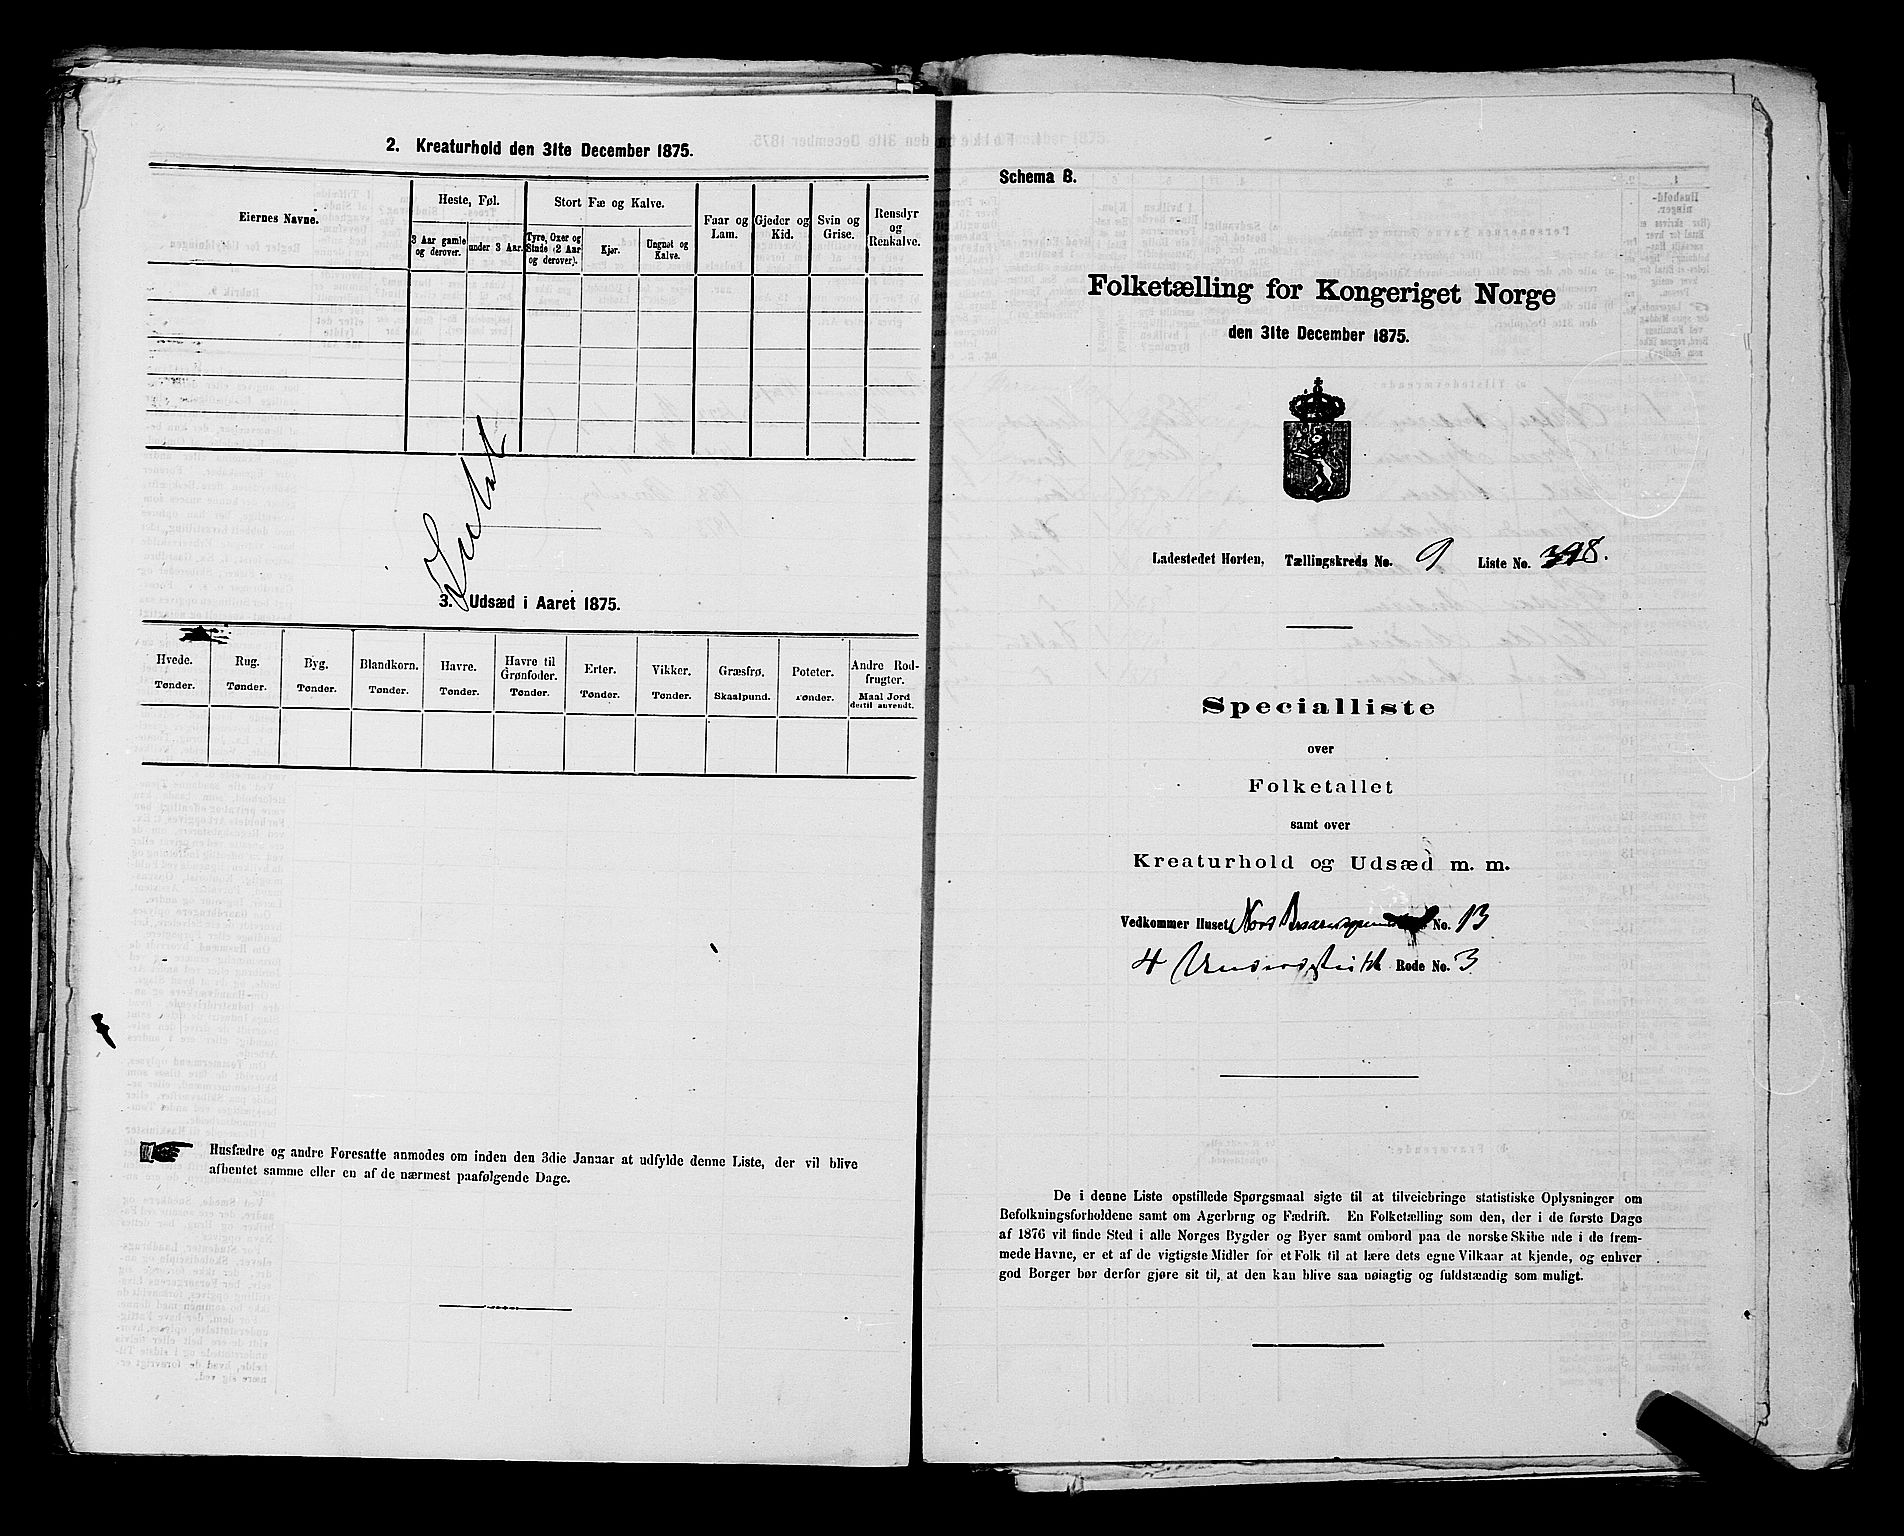 2. Kreaturhold den 31te December 1875.
Eiernes Navne.
Heste, Føl.
Stort Fæ og Kalve.
Faar og Lam.
Gjeder og Kid.
Svin og Grise.
Rensdyr og Renkalve.
3 Aar gamle og derover.
under 3 Aar.
Tyre, Oxer og Stude (2 Aar og derover).
Kjør.
Ungnøt og Kalve.
3. Udsæd i Aaret 1875.
Hvede. Rug. Byg. Blandkorn. Havre. Havre til Grønfoder. Erter. Vikker. Græsfrø. Poteter. Andre Rodfrugter.
Tønder. Tønder. Tønder. Tønder. Tønder. Tønder. Tønder. Tønder. Skaalpund. Tønder. Maal Jord dertil anvendt.
Husfædre og andre Foresatte anmodes om inden den 3die Januar at udfylde denne Liste, der vil blive
afhentet samme eller en af de nærmest paafølgende Dage.
Schema B.
Folketælling for Kongeriget Norge
den 31te December 1875.
Ladestedet Horten, Tællingskreds No. 9 Liste No.
Specialliste
over
Folketallet
samt over
Kreaturhold og Udsæd m. m.
Vedkommer Huset Nord No. 13
4 Rode No. 3
De i denne Liste opstillede Spørgsmaal sigte til at tilveiebringe statistiske Oplysninger om
Befolkningsforholdene samt om Agerbrug og Fædrift. En Folketælling som den, der i de første Dage
af 1876 vil finde Sted i alle Norges Bygder og Byer samt ombord paa de norske Skibe ude i de frem-
mede Havne, er et af de vigtigste Midler for et Folk til at lære dets egne Vilkaar at kjende, og enhver
god Borger bør derfor gjøre sit til, at den kan blive saa nøiagtig og fuldstændig som muligt.